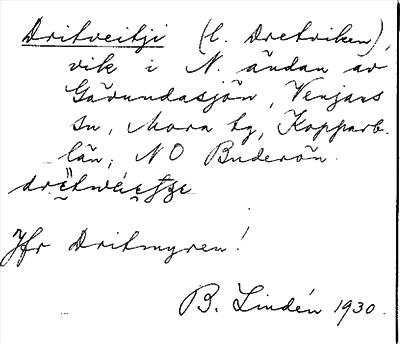 Dritveitji (l. Dretviken),
vik i N. ändan av
Gårundasjön, Venjans
sn, Mora tg, Kopparb.
län; NO Buderön.
Jfr Dritmyren!
B. Lindén 1930.